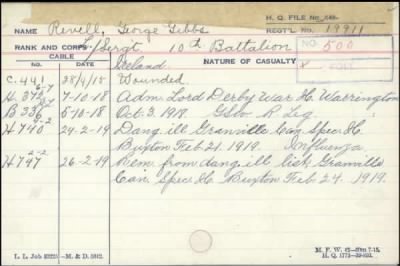 H. Q. FILE No. 649-
NAME Revell, George Gibbs REGT'L NO. 19911
RANK AND CORPS L/Sergt. 10th Battalion NO. 500
CABLE NATURE OF CASUALTY
NO. DATE Ireland
C.441 28/4/15 Wounded
H 376 7-10-18 Adm. Lord Derby War H. Warrington
B 336 5-10-18 Oct. 3. 1918. GSW. R. Leg
H 740 24-2-19 Dang. ill Granville Can. Spec. H.
Buxton Feb 21. 1919. Influenza
H 747 26-2-19 Rem. from dang. ill list Granville
Can. Spec. H. Buxton Feb 24. 1919.
L. L. Job —M. & D.
M. F. W. 
H. Q. 1772-39-